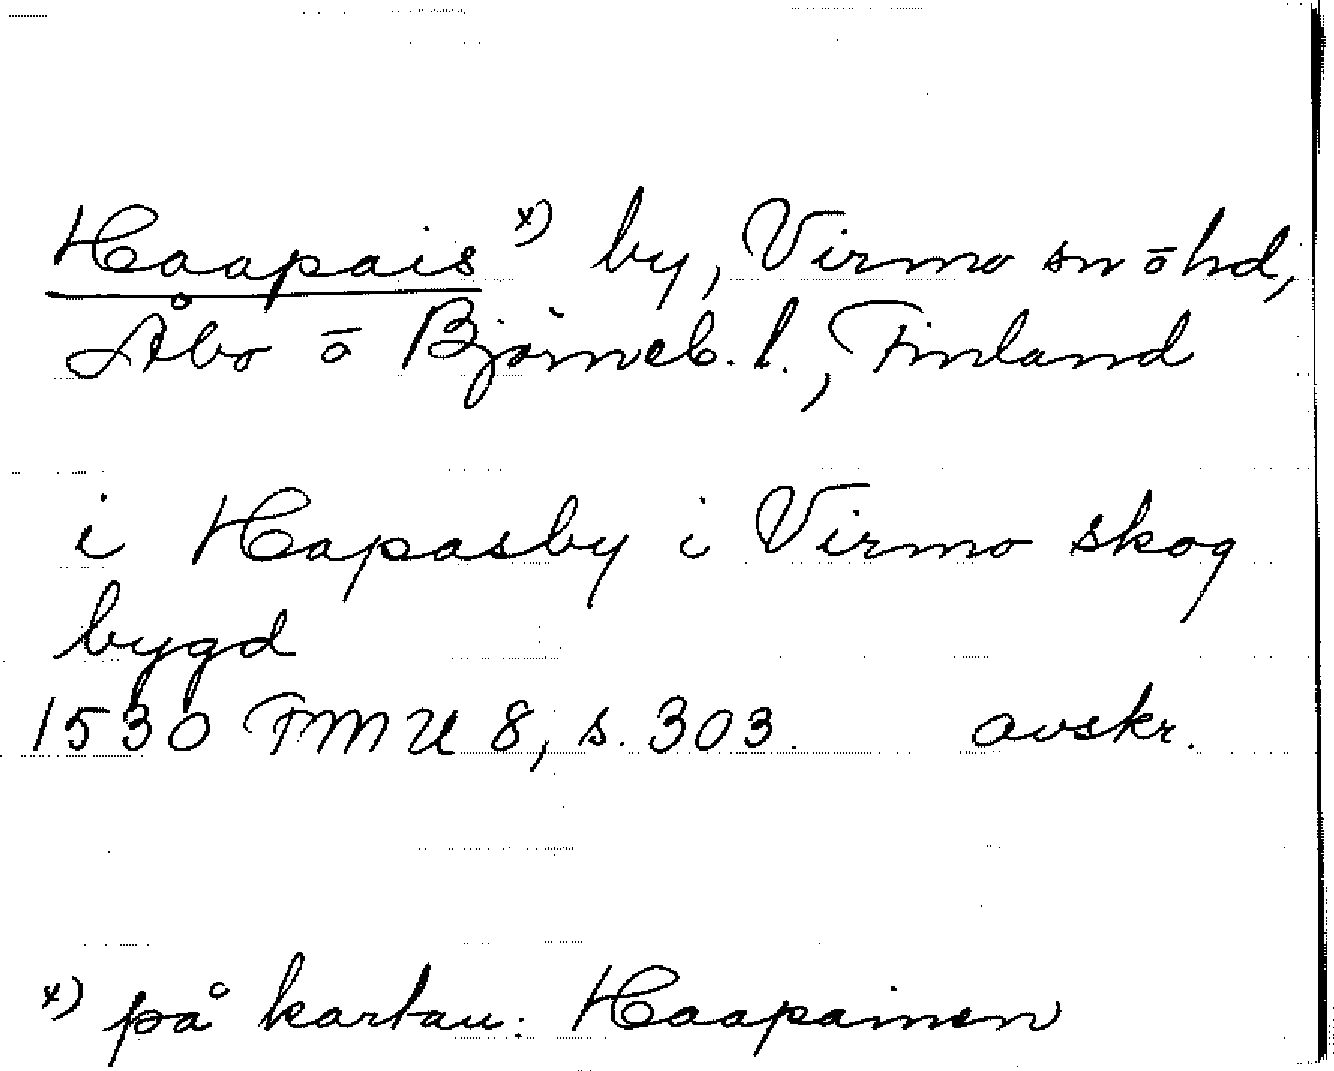 Haapais x) by, Virmo sn ō hd,
Åbo ō Björneb. l., Finland
i Hapasby i Virmo skog
bygd
1530 FMU 8, s. 303. avskr.
x) på kartan: Haapainen